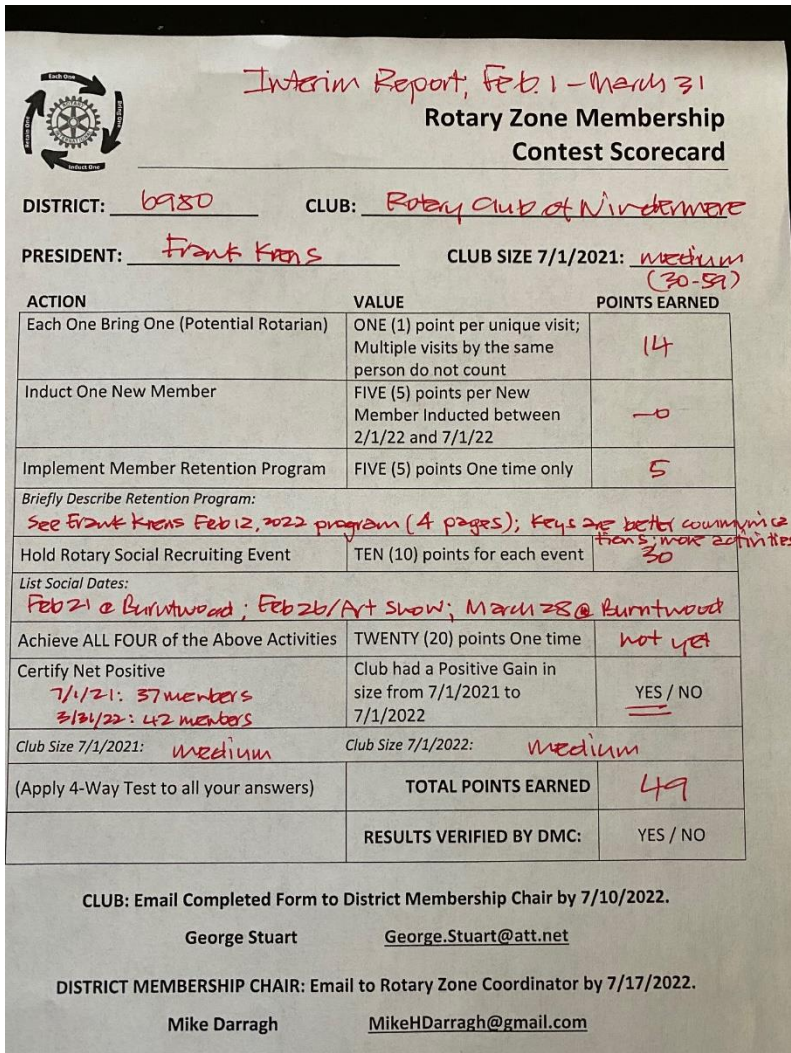 Interim Report, Feb. 1 - March 31
Each One
Bring One
Induct One
Retain One
Rotary Zone Membership
Contest Scorecard
DISTRICT: 6980 CLUB: Rotary Club of Windermere
PRESIDENT: Frank Krens CLUB SIZE 7/1/2021: medium
(30-59)
ACTION VALUE POINTS EARNED
Each One Bring One (Potential Rotarian) ONE (1) point per unique visit;
Multiple visits by the same
person do not count
14
Induct One New Member FIVE (5) points per New
Member Inducted between
2/1/22 and 7/1/22
-0
Implement Member Retention Program FIVE (5) points One time only 5
Briefly Describe Retention Program:
See Frank Krens Feb 12, 2022 program (4 pages); Keys are better communica
tions; more activities
Hold Rotary Social Recruiting Event TEN (10) points for each event 30
List Social Dates:
Feb 21 @ Burntwood; Feb 26/Art Show; March 28 @ Burntwood
Achieve ALL FOUR of the Above Activities TWENTY (20) points One time not yet
Certify Net Positive
7/1/21: 37 members
3/31/22: 42 members
Club had a Positive Gain in
size from 7/1/2021 to
7/1/2022
YES / NO
Club Size 7/1/2021: medium Club Size 7/1/2022: medium
(Apply 4-Way Test to all your answers) TOTAL POINTS EARNED 49
RESULTS VERIFIED BY DMC: YES / NO
CLUB: Email Completed Form to District Membership Chair by 7/10/2022.
George Stuart George.Stuart@att.net
DISTRICT MEMBERSHIP CHAIR: Email to Rotary Zone Coordinator by 7/17/2022.
Mike Darragh MikeHDarragh@gmail.com